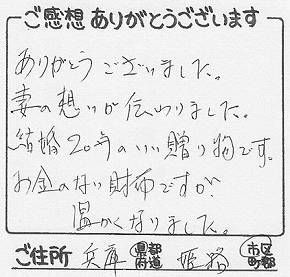 ご感想ありがとうございます
ありがとうございました。
妻の想いが伝わりました。
結婚20年のいい贈り物です。
お金のない財布ですが、
温かくなりました。
ご住所 兵庫 都道府県 姫路 市区町郡